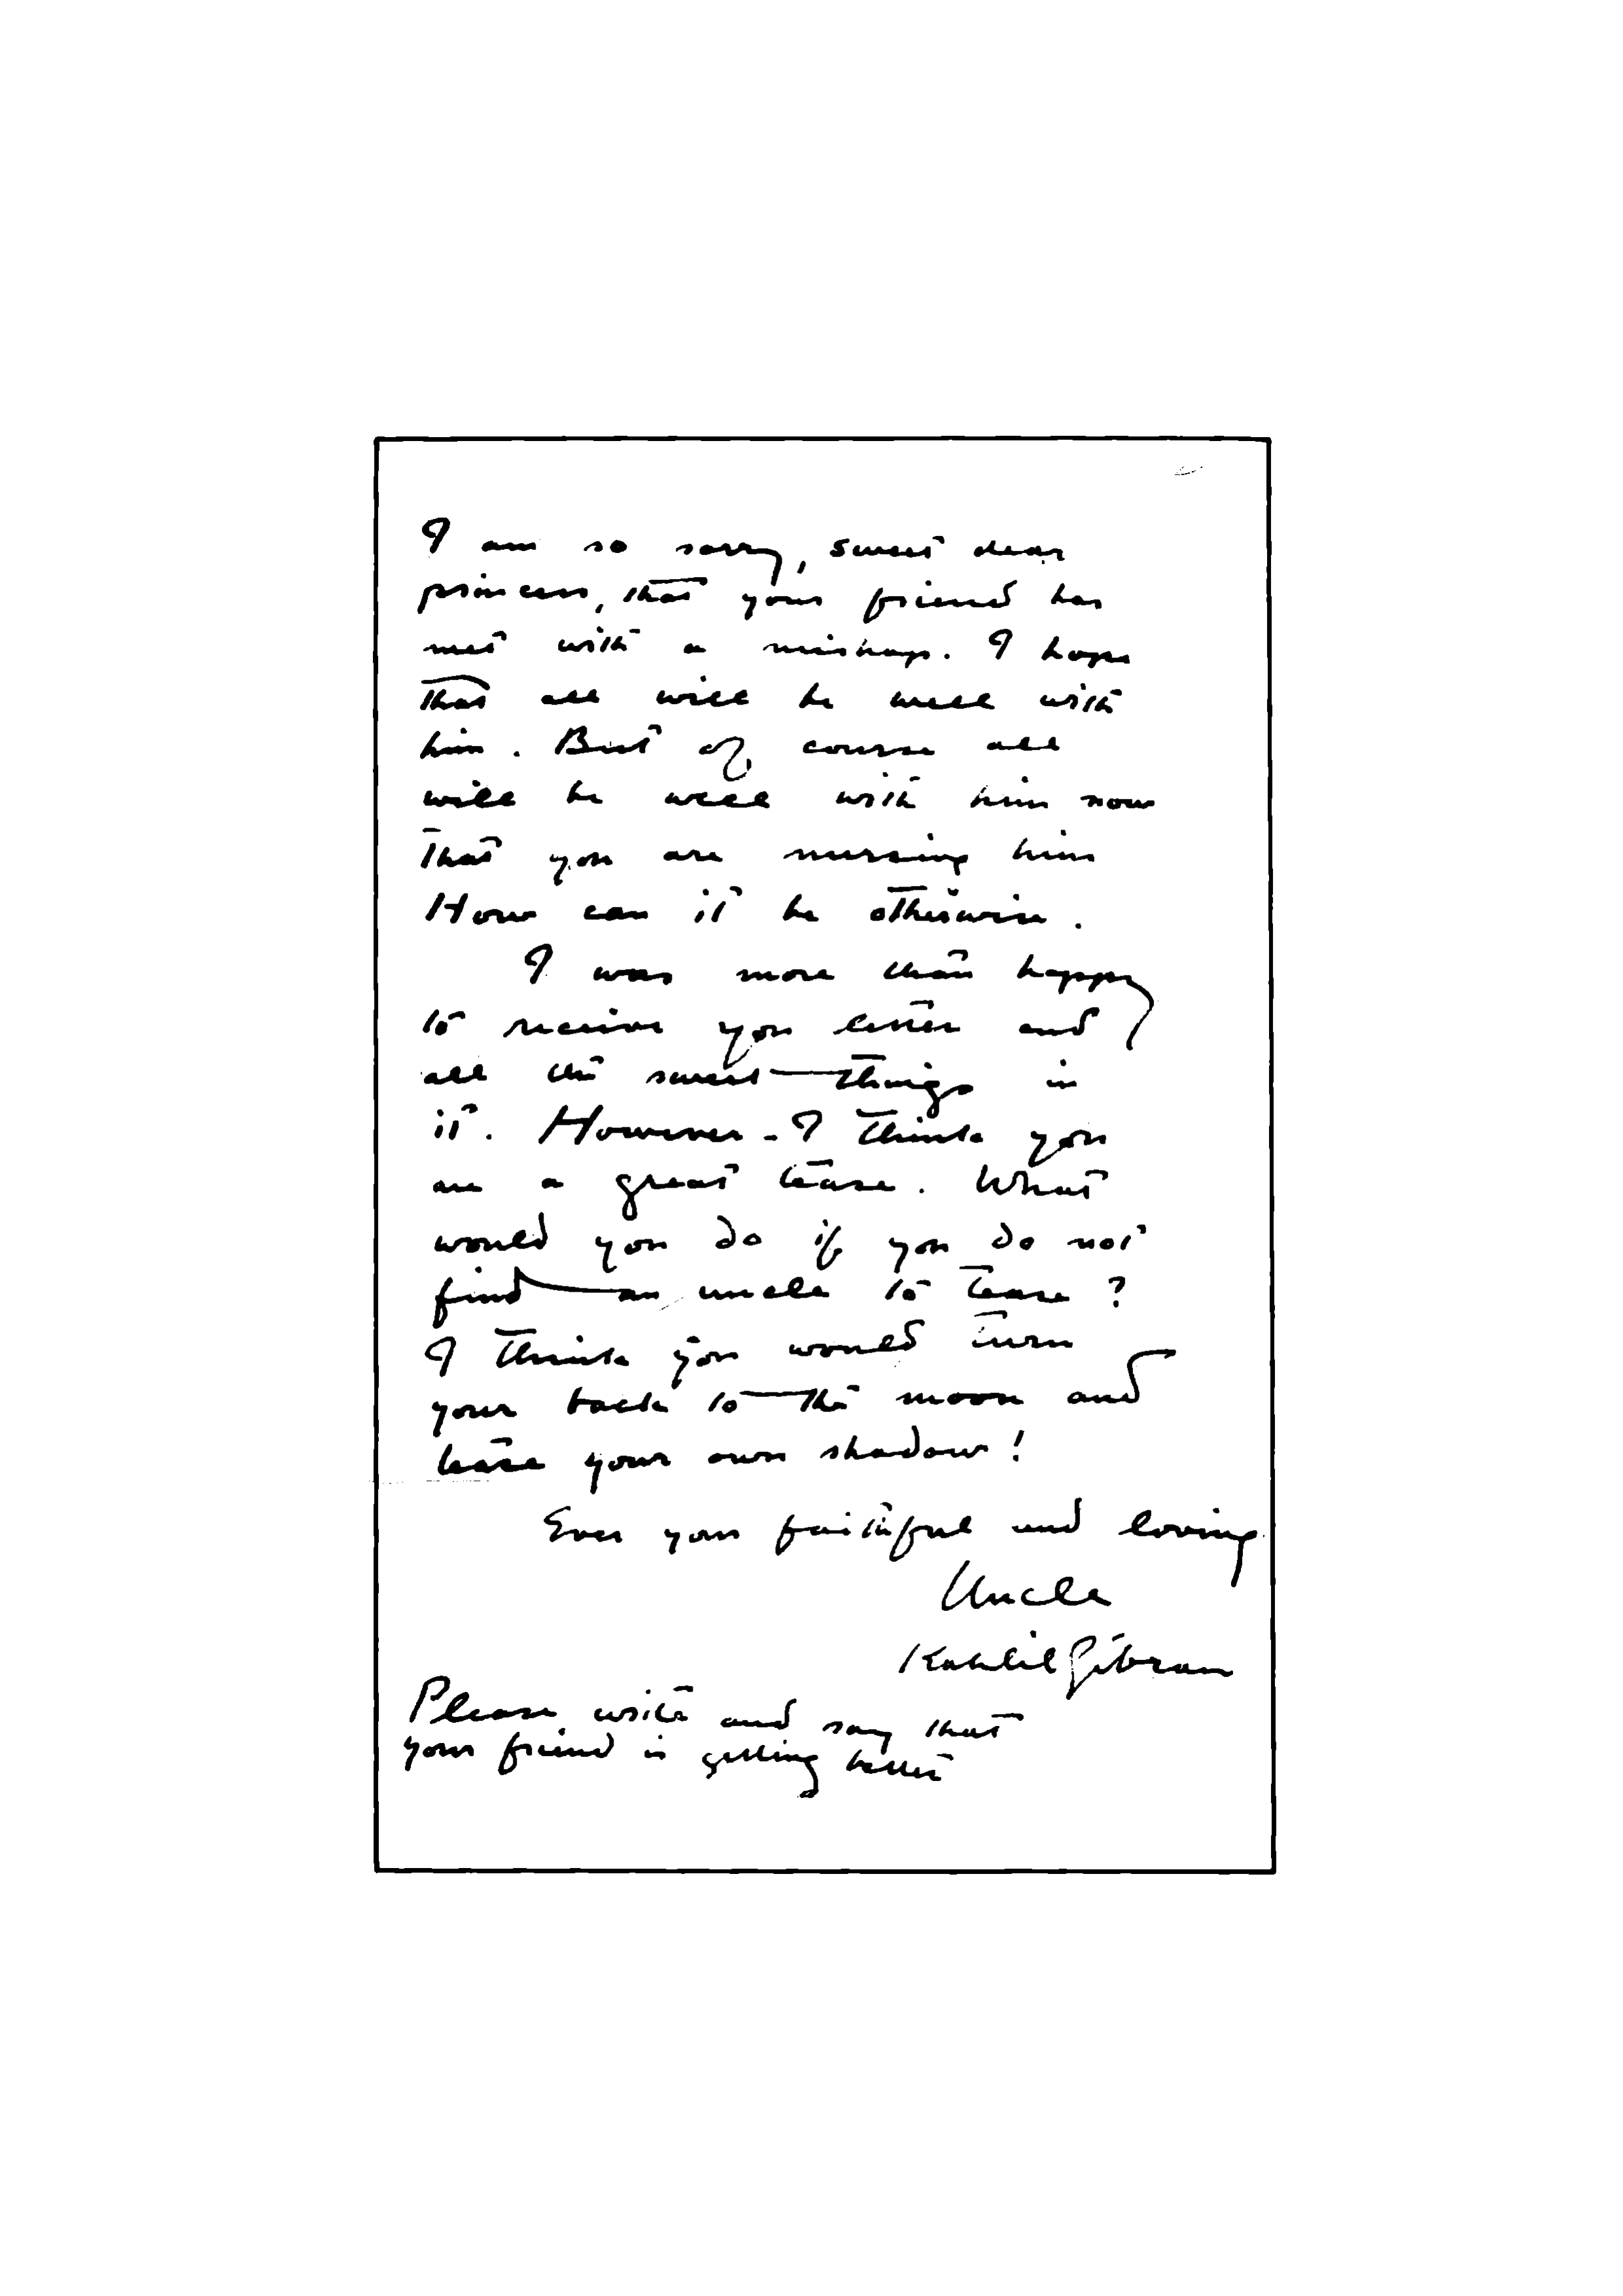 I am so sorry, sweet dear
princess, that your friend has
met with a mishap. I hope
that all will be well with
him. But of course all
will be well with him now
that you are nursing him
How can it be otherwise.
I was more than happy
to receive your letter and
all the sweet things in
it. However - I think you
are a great tease. What
would you do if you do not
find an uncle to tease?
I think you would turn
your back to the moon and
tease your own shadow!
Ever your faithful and loving
Uncle
Kahlil Gibran
Please write and say that
your friend is getting better